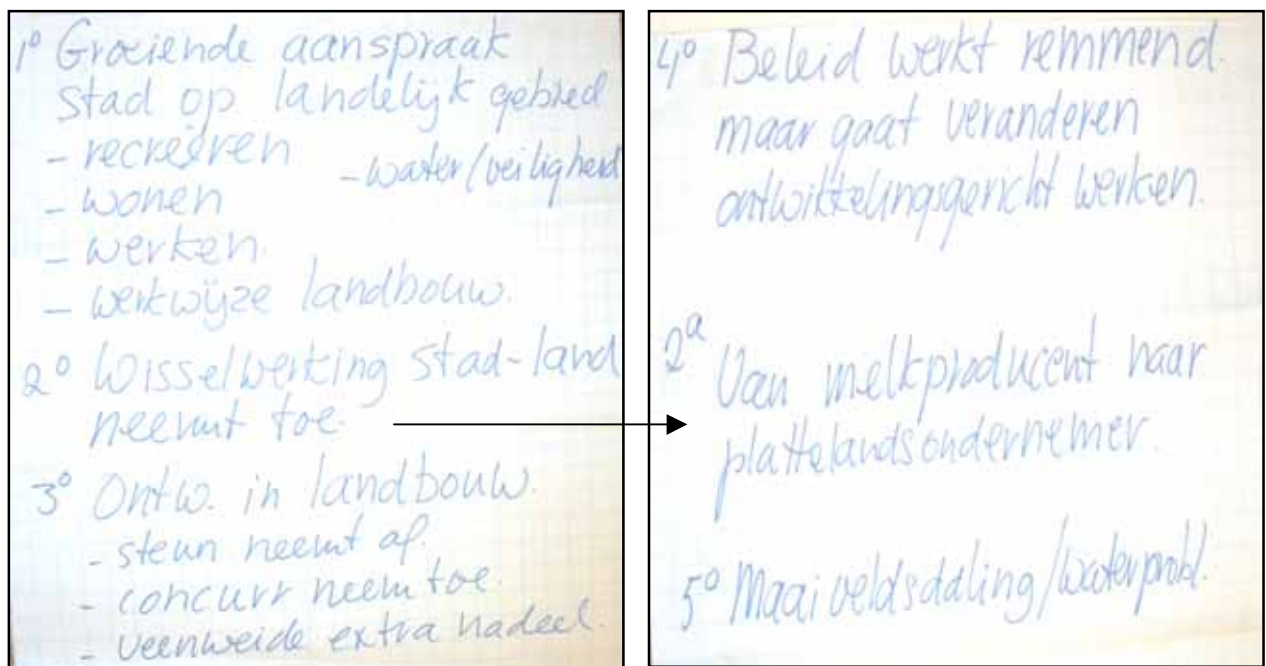 1° Groeiende aanspraak
stad op landelijk gebied
- recreëren
- water/veiligheid
- wonen
- werken.
- werkwijze landbouw.
2° Wisselwerking stad-land
neemt toe.
3° Ontw. in landbouw.
- steun neemt af.
- concurr neem toe
- veenweide extra nadeel.
4° Beleid werkt remmend
maar gaat veranderen
ontwikkelingsgericht werken.
2a Van melkproducent naar
plattelandsondernemer.
5° Maaiveldsdaling/waterprobl.